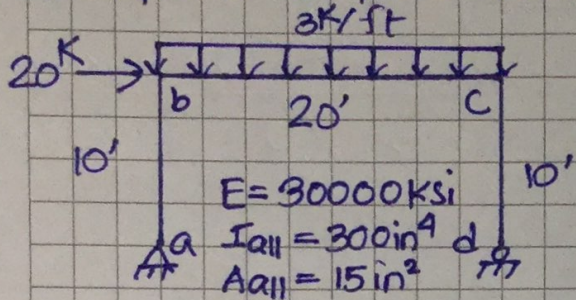 3K/ft
20K
b 20' c
10' 10'
E=30000ksi
a Iall=300in⁴ d
Aall=15in²